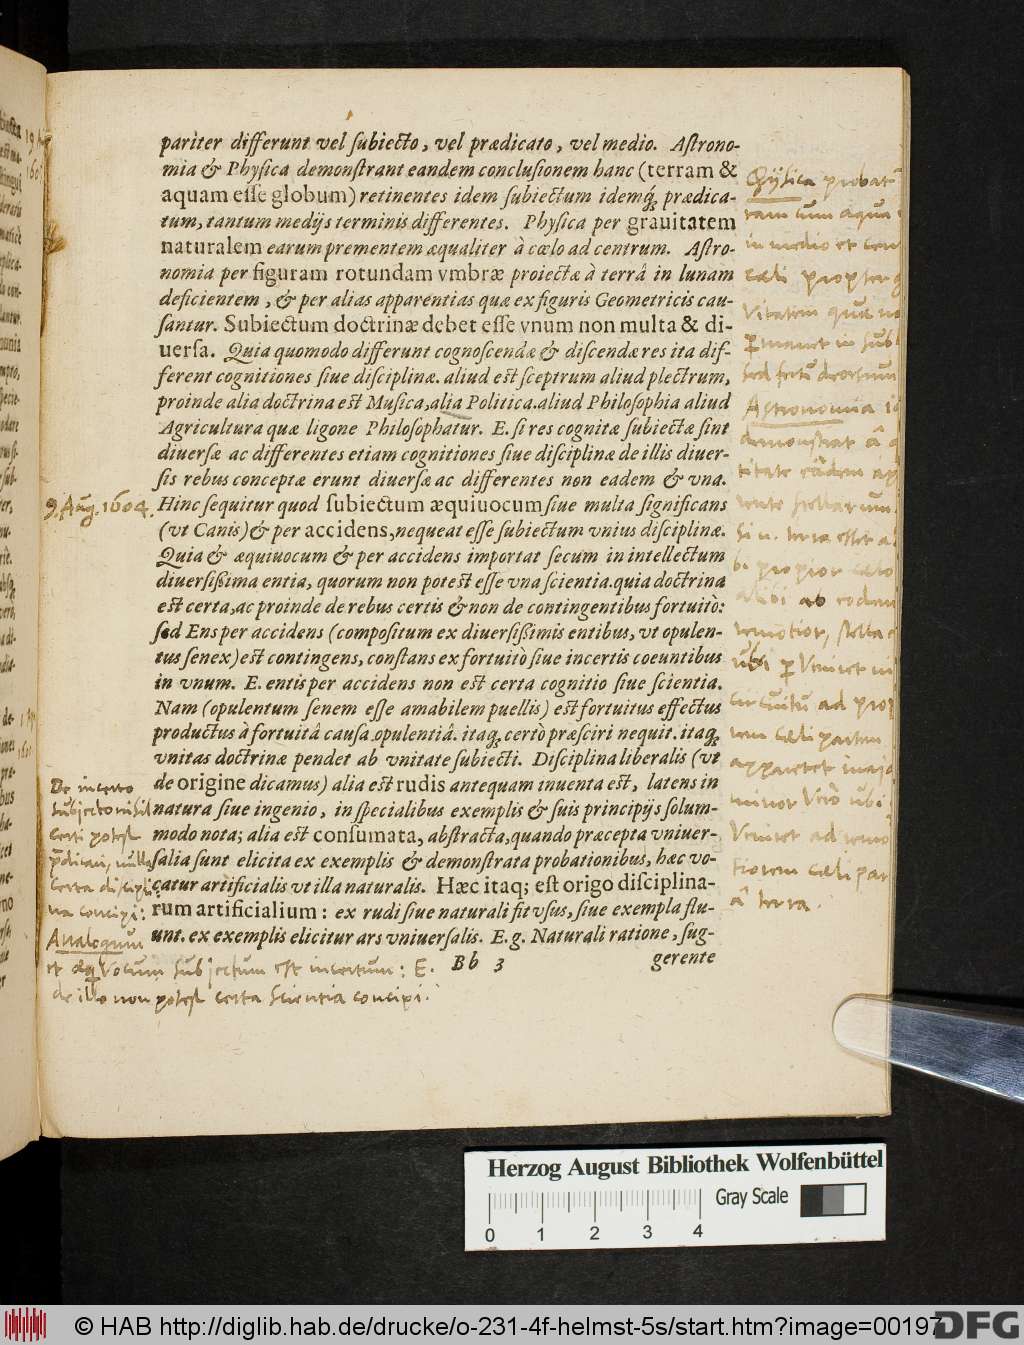 pariter differunt vel subiecto, vel prædicato, vel medio. Astrono-
mia & Physica demonstrant eandem conclusionem hanc (terram &
aquam esse globum) retinentes idem subiectum idemq́ꝫ prædica-
tum, tantum medijs terminis differentes. Physica per grauitatem
naturalem earum prementem æqualiter à cœlo ad centrum. Astro-
nomia per figuram rotundam vmbræ proiectæ à terrâ in lunam
deficientem, & per alias apparentias quæ ex figuris Geometricis cau-
santur. Subiectum doctrinæ debet esse vnum non multa & di-
uersa. Quia quomodo differunt cognoscendæ & discendæ res ita dif-
ferent cognitiones siue disciplinæ. aliud est sceptrum aliud plectrum,
proinde alia doctrina est Musica, alia Politica. aliud Philosophia aliud
Agricultura quæ ligone Philosophatur. E. si res cognitæ subiectæ sint
diuersæ ac differentes etiam cognitiones siue disciplinæ de illis diuer-
sis rebus conceptæ erunt diuersæ ac differentes non eadem & vna.
9. Aug. 1604.
Hinc sequitur quod subiectum æquiuocum siue multa significans
(vt Canis) & per accidens, nequeat esse subiectum vnius disciplinæ.
Quia & æquiuocum & per accidens importat secum in intellectum
diuersißima entia, quorum non potest esse vna scientia. quia doctrina
est certa, ac proinde de rebus certis & non de contingentibus fortuitò:
sed Ens per accidens (compositum ex diuersißimis entibus, vt opulen-
tus senex) est contingens, constans ex fortuitò siue incertis coeuntibus
in vnum. E. entis per accidens non est certa cognitio siue scientia.
Nam (opulentum senem esse amabilem puellis) est fortuitus effectus
productus à fortuitâ causa. opulentiâ. itaqꝫ certò præsciri nequit. itaqꝫ
vnitas doctrinæ pendet ab vnitate subiecti. Disciplina liberalis (vt
de origine dicamus) alia est rudis antequam inuenta est, latens in
natura siue ingenio, in specialibus exemplis & suis principijs solum-
modo nota; alia est consumata, abstracta, quando præcepta vniuer-
salia sunt elicita ex exemplis & demonstrata probationibus, hæc vo-
catur artificialis vt illa naturalis. Hæc itaq; est origo disciplina-
rum artificialium: ex rudi siue naturali fit vsus, siue exempla flu-
unt. ex exemplis elicitur ars vniuersalis. E. g. Naturali ratione, sug-
Bb 3
gerente
De incerto
subjecto nihil
certi potest
p̄dicari, nulla
certa discipli
na concipi:
Analogum
et æqVocum subjectum est incertum: E.
de illo non potest certa scientia concipi.
Physica probat
ram cum aqua
in medio et cen
cœli propter g
Vitatem quæ no
p̱manet in sub
sed fertū deorsum
Astronomia
demonstrat â q
titate eādem ap
rente stellarum
si n. terra esset a
bi propior cœlo
alibi ab eodem
remotior, stella
ubi p̱Veniret in
circuitu ad prop
rem cœli partem
appareret major
minor Verò ubi
Veniret ad remo
tiorem cœli par
â terra.
Herzog August Bibliothek Wolfenbüttel
Gray Scale
0 1 2 3 4
© HAB http://diglib.hab.de/drucke/o-231-4f-helmst-5s/start.htm?image=00197
DFG